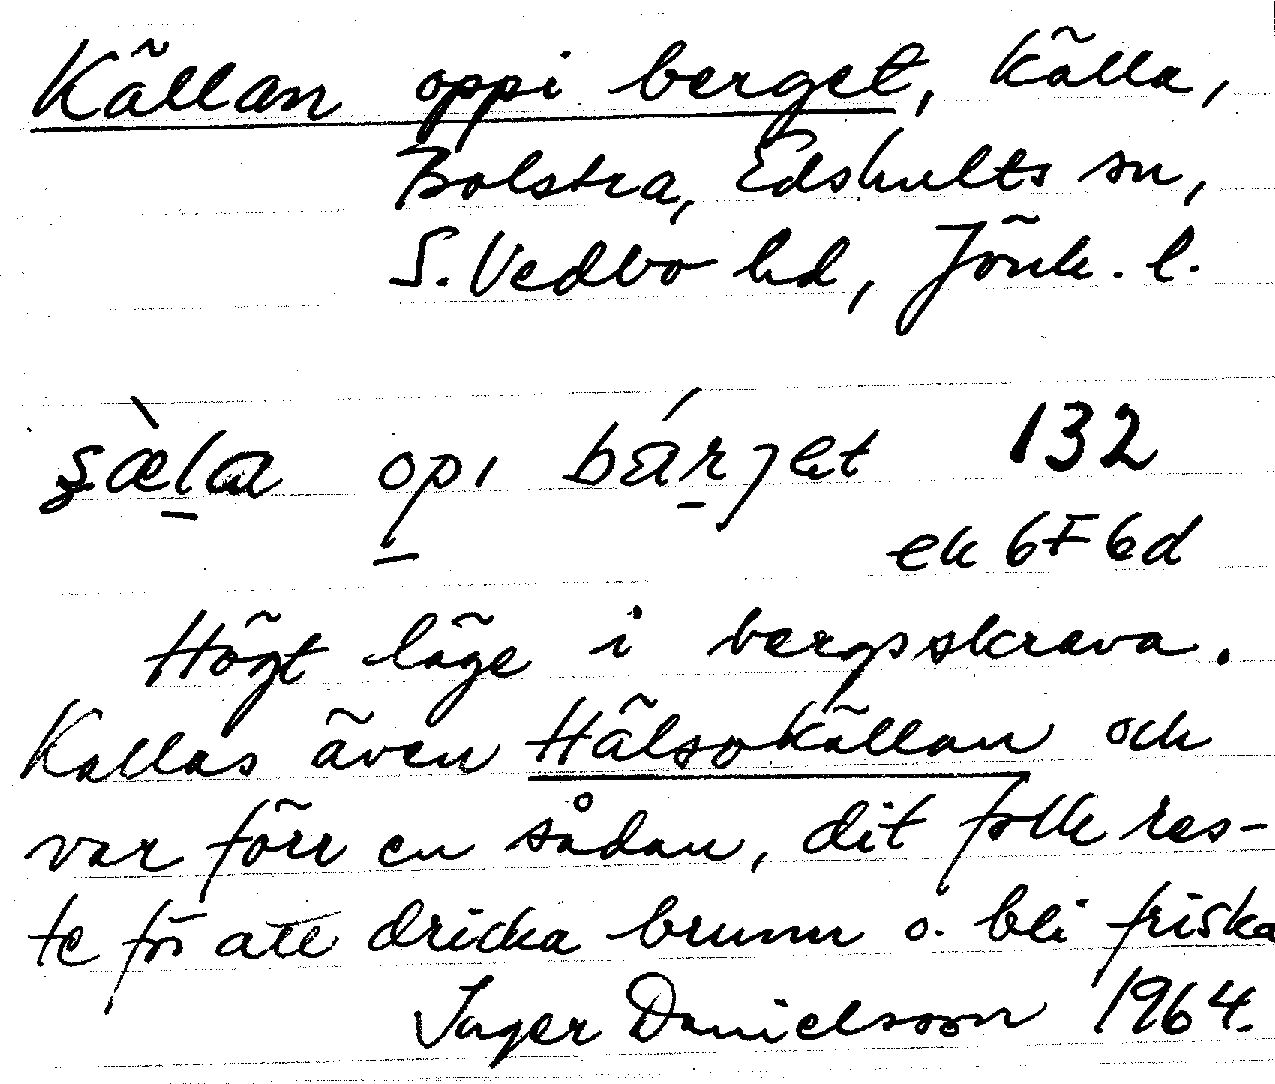 Källan oppi berget, källa,
Bolstra, Edshults sn,
S. Vedbo hd, Jönk. l.
opi 132
ek 6F6d
Högt läge i bergsskreva.
Kallas även Hälsokällan och
var förr en sådan, dit folk res-
te för att dricka brunn o. bli friska
Inger Danielsson 1964.